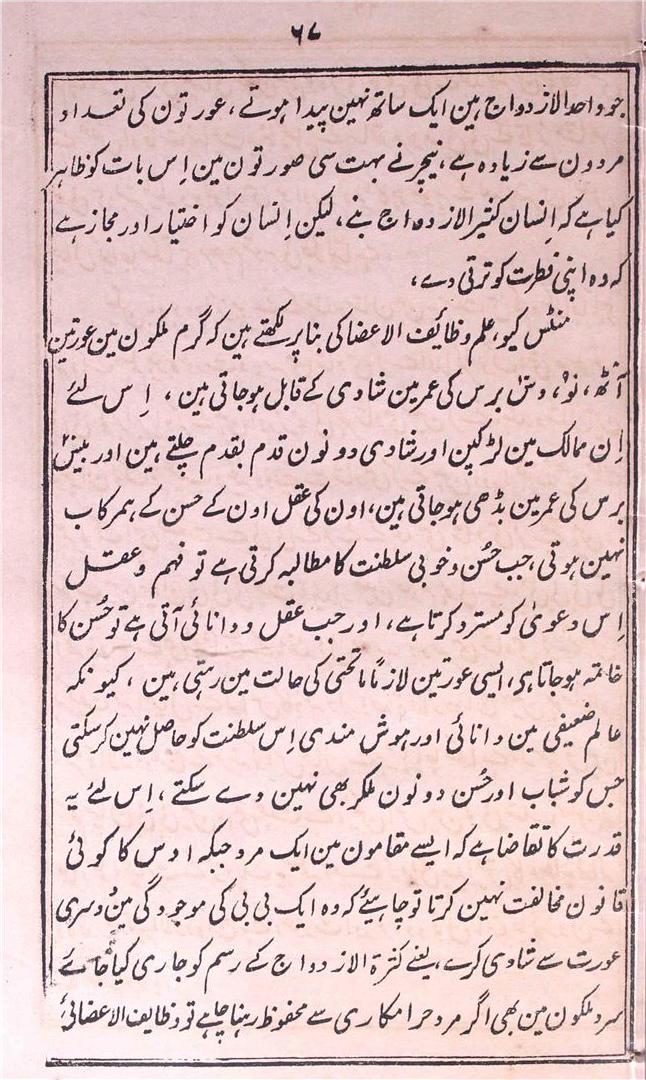 ۶۷
جو واحد الازدواج ہین ایک ساتھ نہین پیدا ہوتے، عورتون کی تعداد
مردون سے زیادہ ہے، نیچر نے بہت سی صورتون مین اِس بات کو ظاہر
کیا ہے کہ اِنسان کثیر الازدواج بنے، لیکن اِنسان کو اختیار اور مجاز ہے
کہ وہ اپنی فطرت کو ترقی دے،
منٹس کیو، علم وظائف الاعضا کی بنا پر لکھتے ہین کہ گرم ملکون مین عورتین
آٹھ، نو، دس برس کی عمر مین شادی کے قابل ہوجاتی ہین، اِس لئے
اِن ممالک مین لڑکپن اور شادی دونون قدم بقدم چلتے ہین اور بیس
برس کی عمر مین بڈھی ہوجاتی ہین، اون کی عقل اون کے حسن کے ہمرکاب
نہین ہوتی، جب حُسن وخوبی سلطنت کا مطالبہ کرتی ہے تو فہم وعقل
اِس دعویٰ کو مسترد کرتا ہے، اور جب عقل ودانائی آتی ہے تو حُسن کا
خاتمہ ہوجاتا ہی، ایسی عورتین لازماً ماتحتی کی حالت مین رہتی ہین، کیونکہ
عالم ضعیفی مین دانائی اور ہوش مندی اِس سلطنت کو حاصل نہین کرسکتی
جس کو شباب اور حُسن دونون ملکر بھی نہین دے سکتے، اِس لئے یہ
قدرت کا تقاضا ہے کہ ایسے مقامون مین ایک مرد جبکہ اوس کا کوئی
قانون مخالفت نہین کرتا تو چاہیئے کہ وہ ایک بی بی کی موجودگی مین دوسری
عورت سے شادی کرے، یعنے کثرۃ الازدواج کے رسم کو جاری کیا جائے
سرد ملکون مین بھی اگر مرد حرامکاری سے محفوظ رہنا چاہے تو وظایف الاعضائی